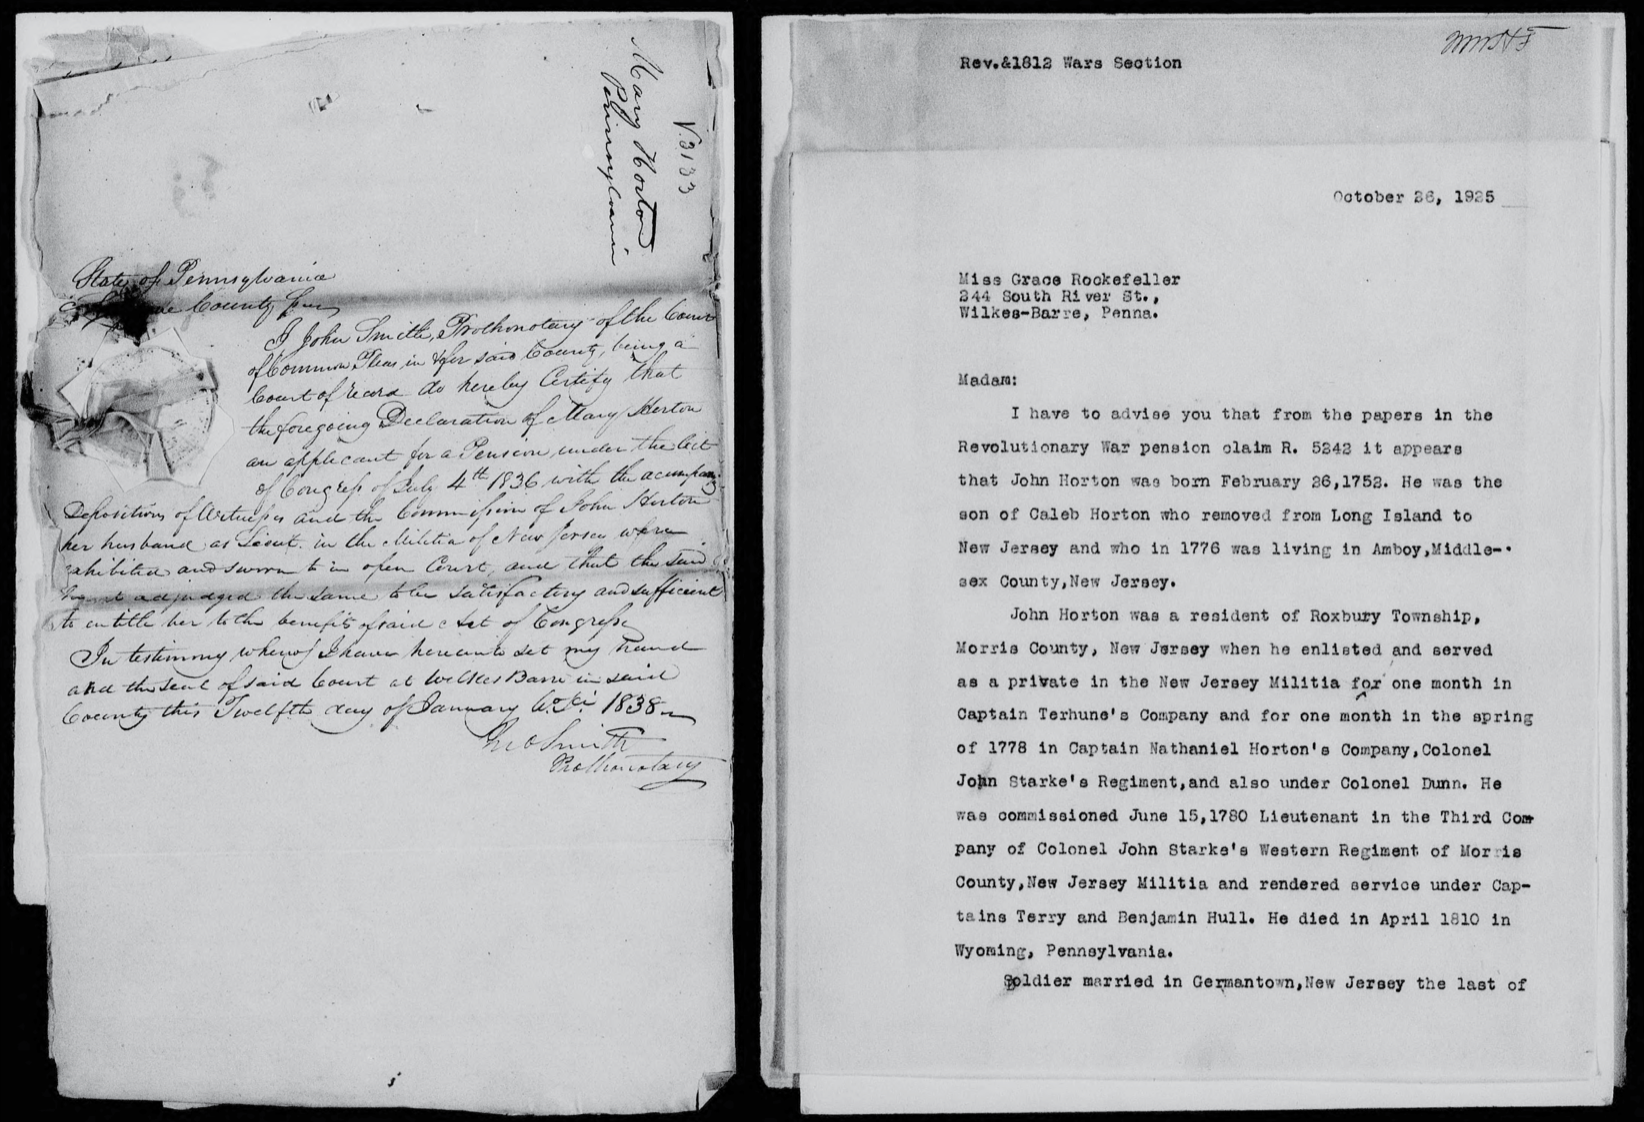 Mary Horton
Pennsylvania
State of Pennsylvania
County ss
I John Smith, Prothonotary of the Court
of Common Pleas in & for said County, being a
Court of record do hereby Certify that
the foregoing Declaration of Mary Horton
an applicant for a Pension under the Act
of Congress of July 4th 1836 with the
Depositions of Witnesses and the Commission of John Horton
her husband as Lieut. in the Militia of New Jersey were
exhibited and sworn to in open Court, and that the said
Court adjudged the same to be satisfactory and sufficient
to entitle her to the benefits of said Act of Congress
In testimony whereof I have hereunto set my hand
and the seal of said Court at Wilkes Barre in said
County this Twelfth day of January 1838
Jno Smith
Prothonotary
Rev.&1812 Wars Section
October 26, 1925
Miss Grace Rockefeller
244 South River St.,
Wilkes-Barre, Penna.
Madam:
I have to advise you that from the papers in the
Revolutionary War pension claim R. 5242 it appears
that John Horton was born February 26,1752. He was the
son of Caleb Horton who removed from Long Island to
New Jersey and who in 1776 was living in Amboy,Middle-
sex County,New Jersey.
John Horton was a resident of Roxbury Township,
Morris County, New Jersey when he enlisted and served
as a private in the New Jersey Militia for one month in
Captain Terhune's Company and for one month in the spring
of 1778 in Captain Nathaniel Horton's Company,Colonel
John Starke's Regiment,and also under Colonel Dunn. He
was commissioned June 15,1780 Lieutenant in the Third Com-
pany of Colonel John Starke's Western Regiment of Morris
County,New Jersey Militia and rendered service under Cap-
tains Terry and Benjamin Hull. He died in April 1810 in
Wyoming, Pennsylvania.
Soldier married in Germantown,New Jersey the last of